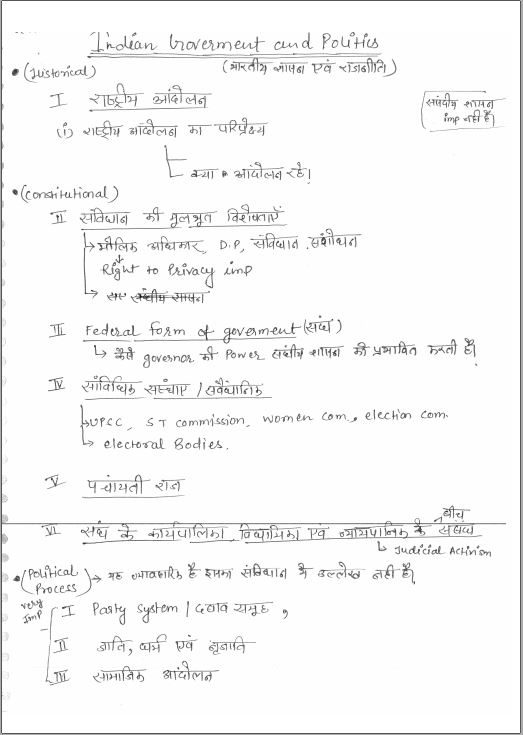 Indian Goverment and Politics
(भारतीय शासन एवं राजनीति)
• (Historical)
I राष्ट्रीय आंदोलन
(संसदीय शासन
imp नहीं है)
(i) राष्ट्रीय आंदोलन का परिप्रेक्ष्य
क्या आंदोलन रहे।
• (Constitutional)
II संविधान की मूलभूत विशेषताएँ
→ मौलिक अधिकार, D.P, संविधान संशोधन
Right to Privacy imp
III Federal form of goverment (संघ)
↳ कैसे governor की Power संघीय शासन को प्रभावित करती है।
IV सांविधिक संस्थाए / संवैधानिक
→ UPCC, ST commission, women com., election com.
→ electoral Bodies.
V पंचायती राज
VI संघ के कार्यपालिका, विधायिका एवं न्यायपालिका के बीच संबंध
↳ Judicial Activism
• (Political Process) → यह व्यावहारिक है इसका संविधान में उल्लेख नहीं है।
very Imp
I Party system / दबाव समूह,
II जाति, धर्म एवं नृजाति
III सामाजिक आंदोलन